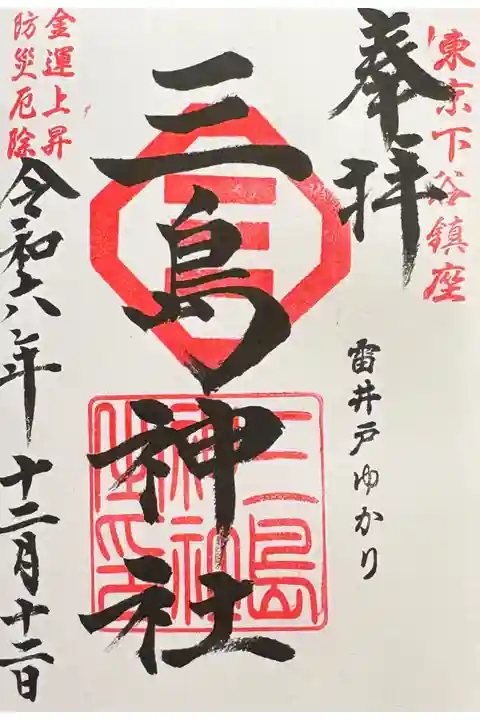 東京下谷鎮座
奉拝
雷井戸ゆかり
三島神社
三島神社之印
金運上昇
防災厄除
令和六年十二月十二日